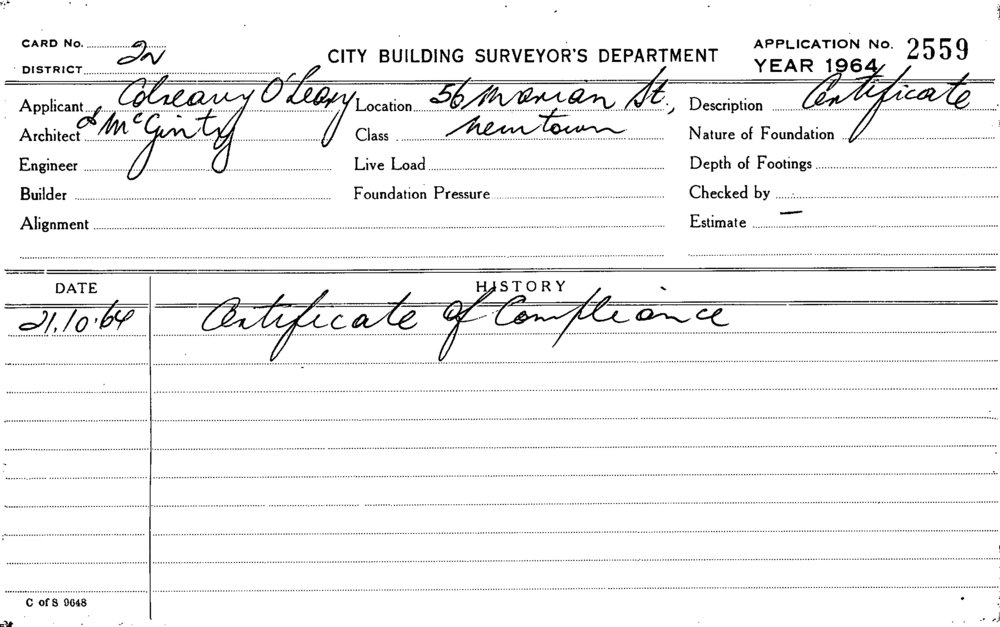 CARD No. 2N
DISTRICT
CITY BUILDING SURVEYOR'S DEPARTMENT
APPLICATION No. 2559
YEAR 1964
Applicant Colreavy O'Leary
Location 56 Marian St.,
Description Certificate
Architect & McGinty
Class Newtown
Nature of Foundation
Engineer
Live Load
Depth of Footings
Builder
Foundation Pressure
Checked by
Alignment
Estimate —
DATE
HISTORY
21.10.64 Certificate of Compliance
C of S 9648